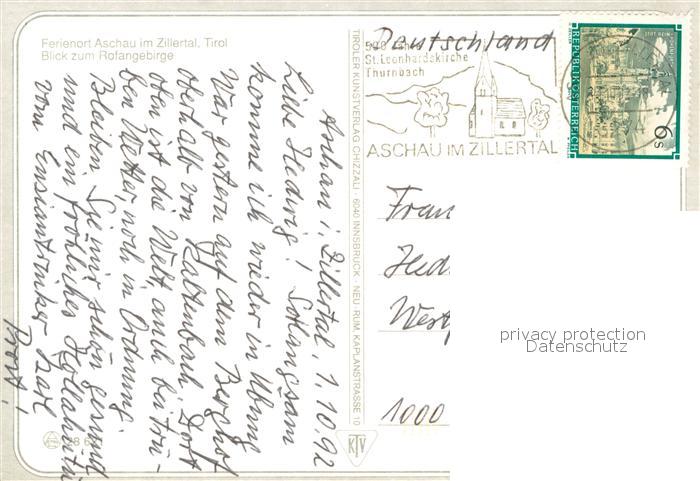 Ferienort Aschau im Zillertal, Tirol
Blick zum Rofangebirge
Aschau i. Zillertal, 1.10.92
Liebe Hedwig! Solangsam
komme ich wieder in Übung
War gestern auf dem Berghof
oberhalb von Kaltenbach. Dort
oben ist die Welt, auch bei trü-
ben Wetter, noch in Ordnung
Bleiben. Sei mir schön gesund
und ein fröhliches Hollahüti
vom Enziantrinker Karl
Prost!
TIROLER KUNSTVERLAG CHIZZALI · 6040 INNSBRUCK - NEU - RUM, KAPLANSTRASSE 10
KTV
Deutschland
500 Jahre
St. Leonhardskirche
Thurnbach
ASCHAU IM ZILLERTAL
REPUBLIK ÖSTERREICH
6 S
Frau
Hed
West
1000
privacy protection
Datenschutz